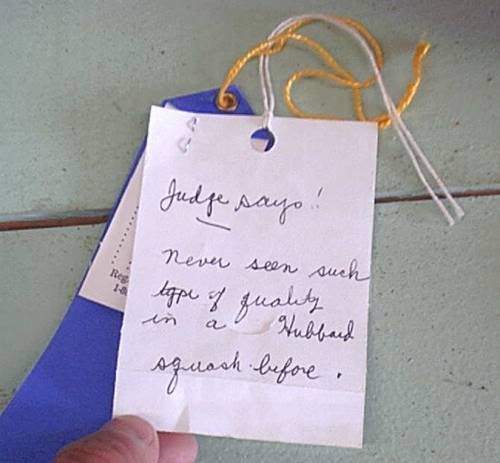 Judge says!
Never seen such
type of quality
in a Hubbard
squash before.
Reg
1-8